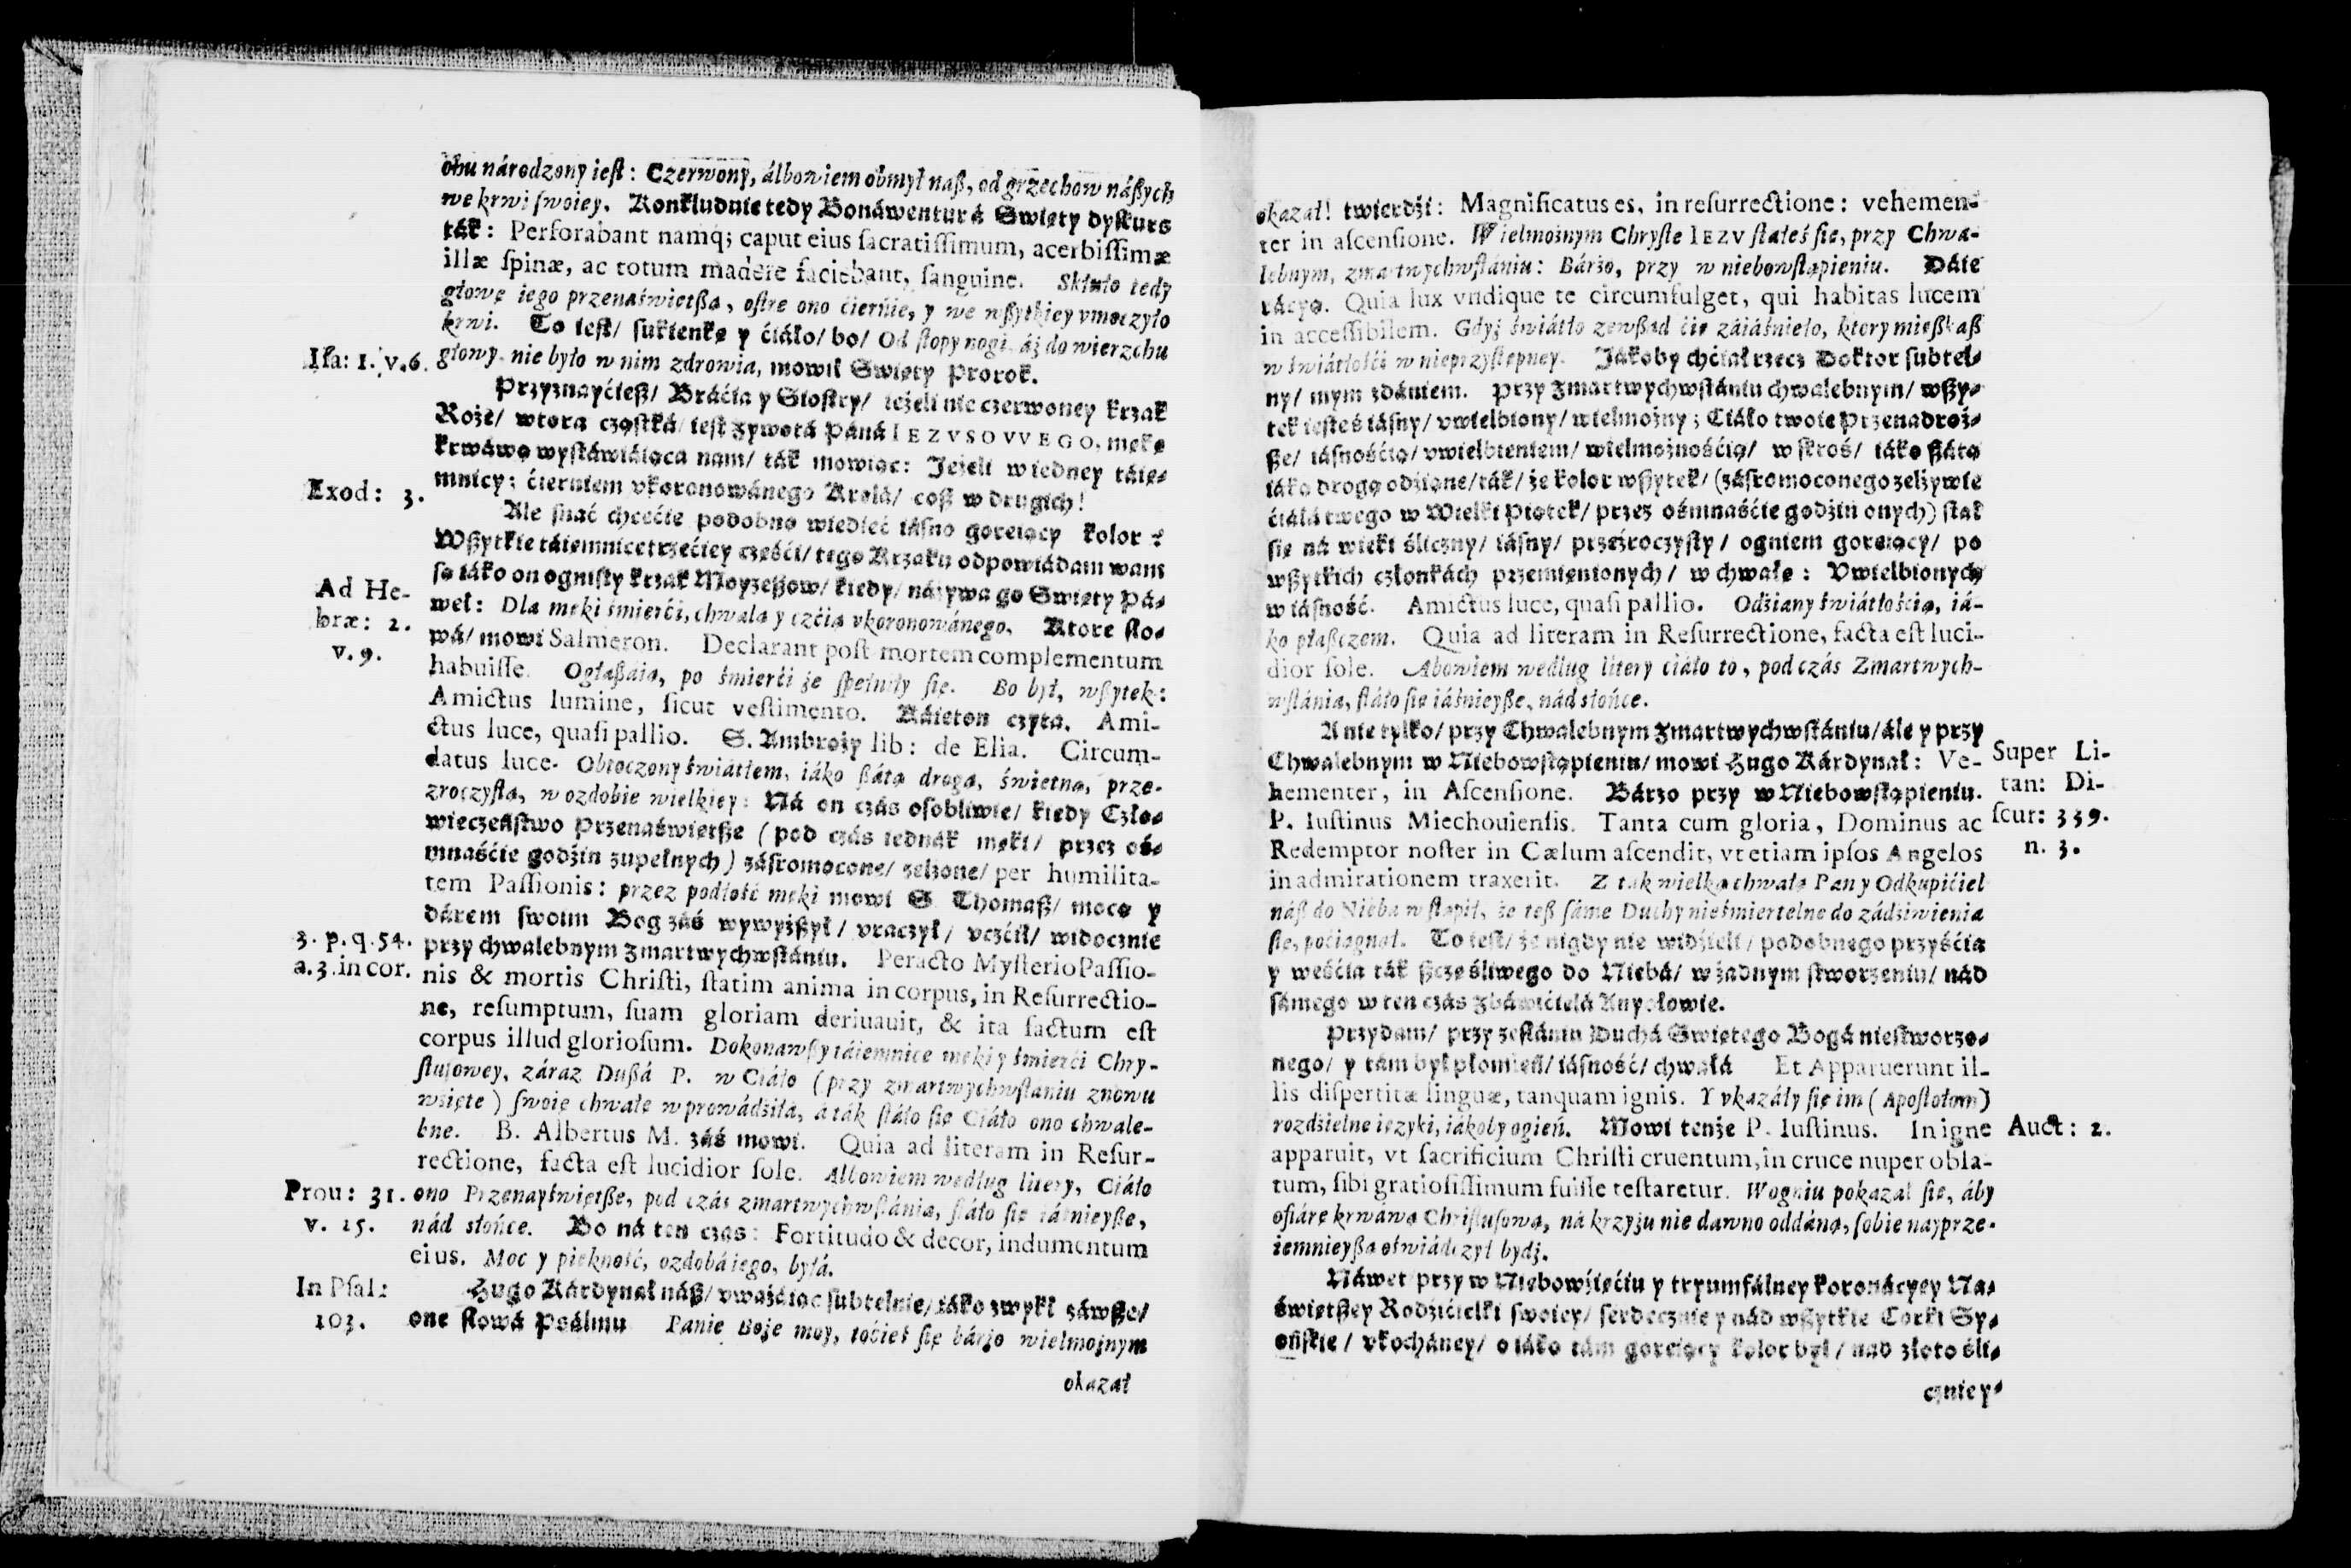 ohu národzony iest: Czerwony, álbowiem obmył naß, od grzechow náßych
we krwi swoiey. Konkludnie tedy Bonáwenturá Swięty dyskurs
ták: Perforabant namq; caput eius sacratissimum, acerbissimæ
illæ spinæ, ac totum madere faciebant, sanguine. Skłuło tedy
głowę iego przenaświetßą, ostre ono ćierńie, y we wßytkiey vmoczyło
krwi. To iest/ sukienkę y ćiáło/ bo/ Od stopy nogi áż do wierzchu
Isa: 1. v.6. głowy, nie było w nim zdrowia, mowił Swięty Prorok.
Przyznayćieß/ Bráćia y Siostry/ ieżeli nie czerwoney krzak
Roże/ wtora cząstká/ iest żywotá Páná IEZVSOVVEGO, mękę
krwáwą wystáwiáiąca nam/ ták mowiąc: Jeżeli w iedney táie-
mnicy; ćierniem vkoronowánego Krolá/ coß w drugich!
Exod: 3. Ale snać chcećie podobno wiedźieć iásno goreiący kolor?
Wßytkie táiemnice trzećiey częśći/ tego Krzaku odpowiádam wam
są iáko on ognisty krzak Moyzeßow/ kiedy/ názywa go Swięty Pá-
Ad He-
bræ: 2.
v. 9.
weł: Dla męki śmierći, chwałą y czćią vkoronowánego. Ktore sło-
wá/ mowi Salmeron. Declarant post mortem complementum
habuisse. Ogłaßáią, po śmierći że spełniły się. Bo był, wßytek:
Amictus lumine, sicut vestimento. Káietan czyta. Ami-
ctus luce, quasi pallio. S. Ambroży lib: de Elia. Circum-
datus luce. Obtoczony świátłem, iáko ßátą drogą, świetną, prze-
zroczystą, w ozdobie wielkiey: Ná on czás osobliwie/ kiedy Czło-
wieczeństwo Przenaświetße (pod czás iednák męki/ przez oś-
mnaśćie godźin zupełnych) zásromocone/ zelżone/ per humilita-
tem Passionis: przez podłość męki mowi S. Thomaß/ mocą y
dárem swoim Bog záś wywyżßył/ vraczył/ vczćił/ widocznie
3. p. q. 54.
a. 3. in cor.
przy chwalebnym Zmartwychwstániu. Peracto Mysterio Passio-
nis & mortis Christi, statim anima in corpus, in Resurrectio-
ne, resumptum, suam gloriam deriuauit, & ita factum est
corpus illud gloriosum. Dokonawßy táiemnice męki y śmierći Chry-
stusowey, záraz Dußá P. w Ciáło (przy zmartwychwstaniu znowu
wźięte) swoię chwałę wprowádźiłá, á ták stáło się Ciáło ono chwale-
bne. B. Albertus M. záś mowi. Quia ad literam in Resur-
rectione, facta est lucidior sole. Albowiem według litery, Ciáło
Prou: 31.
v. 25.
ono Przenayświętße, pod czás zmartwychwstánia, stáło się iáśnieyße,
nád słońce. Bo ná ten czas: Fortitudo & decor, indumentum
eius. Moc y piękność, ozdobá iego, byłá.
In Psal:
103.
Hugo Kárdynał náß/ vważáiąc subtelnie/ iáko zwykł záwße/
one słowá Psálmu Panie Boże moy, toćieś się bárzo wielmożnym
okazał
okazał! twierdźi: Magnificatus es, in resurrectione: vehemen-
ter in ascensione. Wielmożnym Chryste IEZV stałeś się, przy Chwa-
lebnym, zmartwychwstániu: Bárzo, przy w niebowstąpieniu. Dáie
rácyą. Quia lux vndique te circumfulget, qui habitas lucem
in accessibilem. Gdyż świátło zewßąd ćię záiáśniało, ktory mießkaß
w świátłośći w nieprzystępney. Jákoby chćiał rzec Doktor subtel-
ny/ mym zdániem. Przy Zmartwychwstániu chwalebnym/ wßy-
tek iesteś iásny/ vwielbiony/ wielmożny; Ciáło twoie Przenadroż-
ße/ iásnośćią/ vwielbieniem/ wielmożnośćią/ w skroś/ iáko ßátą
iáką drogą odźiane/ ták/ że kolor wßytek/ (zásromoconego zelżywie
ćiáłá twego w Wielki Piątek/ przez ośmnaśćie godźin onych) stał
się ná wieki śliczny/ iásny/ przeźroczysty/ ogniem goreiący/ po
wßytkich członkách przemienionych/ w chwałę: Vwielbionych
w iásność. Amictus luce, quasi pallio. Odźiany świátłośćią, iá-
ko płaßczem. Quia ad literam in Resurrectione, facta est luci-
dior sole. Abowiem według litery ciáło to, pod czás Zmartwych-
wstánia, stáło się iáśnieyße, nád słońce.
A nie tylko/ przy Chwalebnym Zmartwychwstániu/ ále y przy
Chwalebnym w Niebowstąpieniu/ mowi Hugo Kárdynał: Ve-
hementer, in Ascensione. Bárzo przy w Niebowstąpieniu.
Super Li-
tan: Di-
scur: 339.
n. 3.
P. Iustinus Miechouiensis. Tanta cum gloria, Dominus ac
Redemptor noster in Cælum ascendit, vt etiam ipsos Angelos
in admirationem traxerit. Z tak wielką chwałą Pan y Odkupićiel
náß do Niebá wstąpił, że teß sáme Duchy nieśmiertelne do zádźiwienia
się, poćiągnął. To iest/ że nigdy nie widźieli/ podobnego przyśćia
y weśćia ták ßczęśliwego do Niebá/ w żadnym stworzeniu/ nád
sámego w ten czás Zbáwićielá Anyołowie.
Przydam/ przy zesłániu Duchá Swiętego Bogá niestworzo-
nego/ y tám był płomień/ iásność/ chwałá Et Apparuerunt il-
lis dispertitæ linguæ, tanquam ignis. Y vkazáły się im (Apostołom)
rozdźielne ięzyki, iákoby ogień. Mowi tenże P. Iustinus. In igne
Auct: 2.
apparuit, vt sacrificium Christi cruentum, in cruce nuper obla-
tum, sibi gratiosissimum fuisse testaretur. W ogniu pokazał się, áby
ofiárę krwáwą Christusową, ná krzyżu nie dawno oddáną, sobie nayprze-
iemnieyßą oświádczył bydź.
Náwet przy w Niebowźięćiu y tryumfálney koronácyey Na-
świętßey Rodźićielki swoiey/ serdecznie y nád wßytkie Corki Sy-
ońskie/ vkocháney/ o iáko tám goreiący kolor był/ nad złoto śli-
czniey-